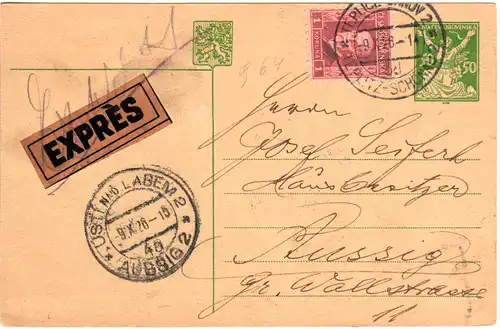 TEPLICE ŠANOV 2
TEPLITZ-SCHÖNAU 2
1
KORUNA
50
964
Express
EXPRÈS
Herrn
Josef Seifert
Hausbesitzer
Aussig
gr. Wallstrasse
11
ÚSTÍ N/L LABEM 2
9.X.26-15
4a
* AUSSIG 2 *